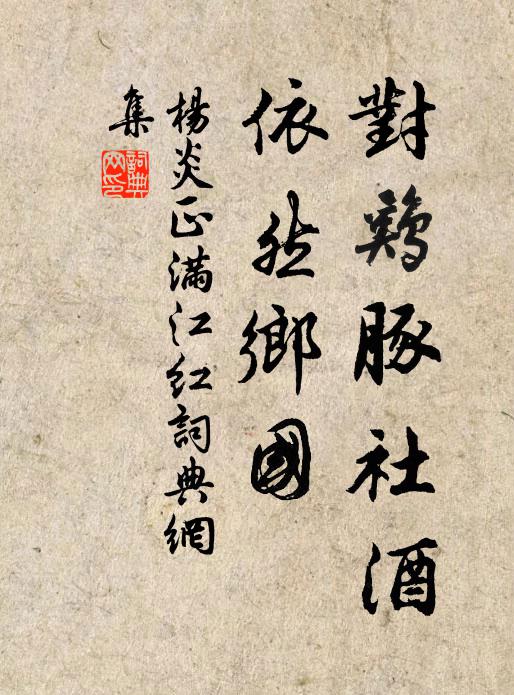 對鷄豚社酒
依然鄉國
楊炎正滿江紅詞典網
集
詞典
网印